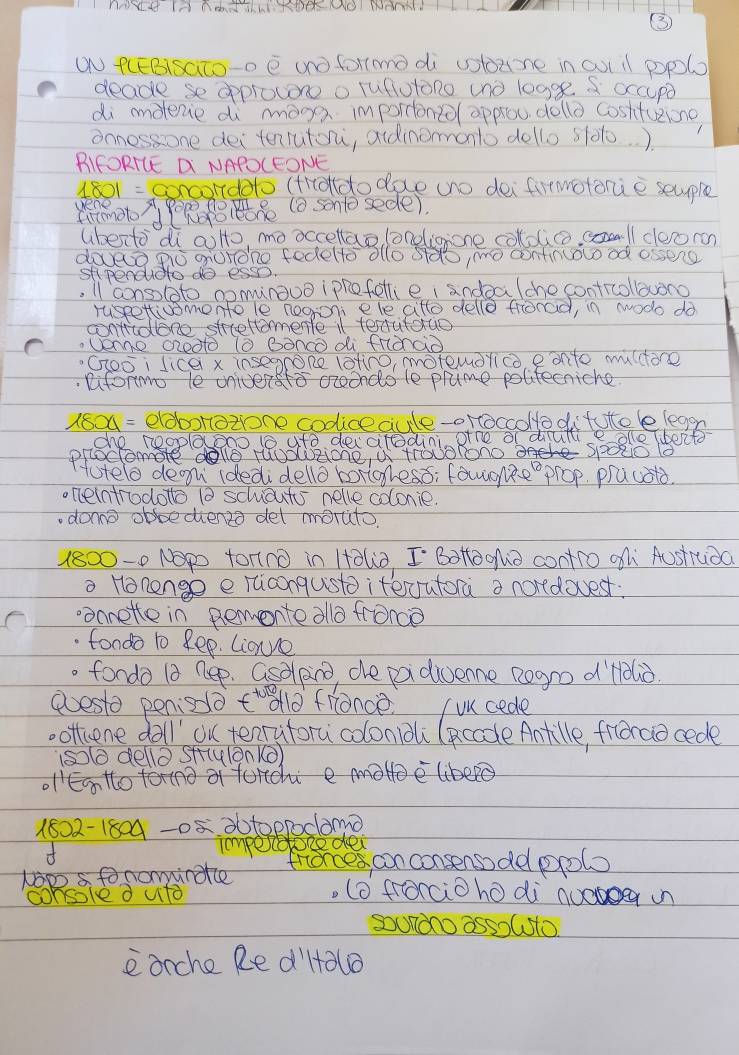 3
UN PLEBISCITO → è una forma di votazione in cui il popolo
decide se approvare o rufiutare una legge. Si occupa
di materie di magg. importanza (approv. della costituzione,
annessione dei territori, ordinamento dello stato...).
RIFORME DI NAPOLEONE
1801 = concordato (trattato dove uno dei firmatari è sempre
viene firmato Papa Pio VII e Napoleone la santa sede).
libertà di culto, ma accettava la religione cattolica. Il clero non
doveva più giurare fedeltà allo stato, ma continuava ad essere
stipendiato da esso.
• Il consolato nominava i prefetti e i sindaci (che controllavano
rispettivamente le regioni e le città della francia), in modo da
controllare strettamente il territorio
• venne creata la Banca di francia
• Creò i licei x insegnare latino, matematica e arte militare
• Riformò le università creando le prime politecniche.
1804 = elaborazione codice civile → raccolta di tutte le leggi
che regolavano la vita dei cittadini, oltre ai diritti e alle libertà
proclamate dalla rivoluzione, vi trovarono spazio la
tutela degli ideali della borghesia: famiglia e prop. privata.
• reintrodotta la schiavitù nelle colonie.
• donna obbedienza del marito.
1800 → Napo torna in Italia, I° Battaglia contro gli Austriaci
a Marengo e riconquista i territori a nordovest:
• annette in Piemonte alla francia
• fonda la Rep. Ligure
• fonda la Rep. Cisalpina, che poi divenne Regno d'Italia.
Questa penisola alla francia.
• ottiene dall' UK territori coloniali (UK cede piccole Antille, francia cede
isola dello Sri Lanka)
• l'Egitto torna ai turchi e malta è libera
1802-1804 → Si autoproclama
imperatore dei
francesi, con consenso del popolo
Napo si fa nominare
console a vita
• la francia ha di nuovo un
sovrano assoluto
è anche Re d'Italia